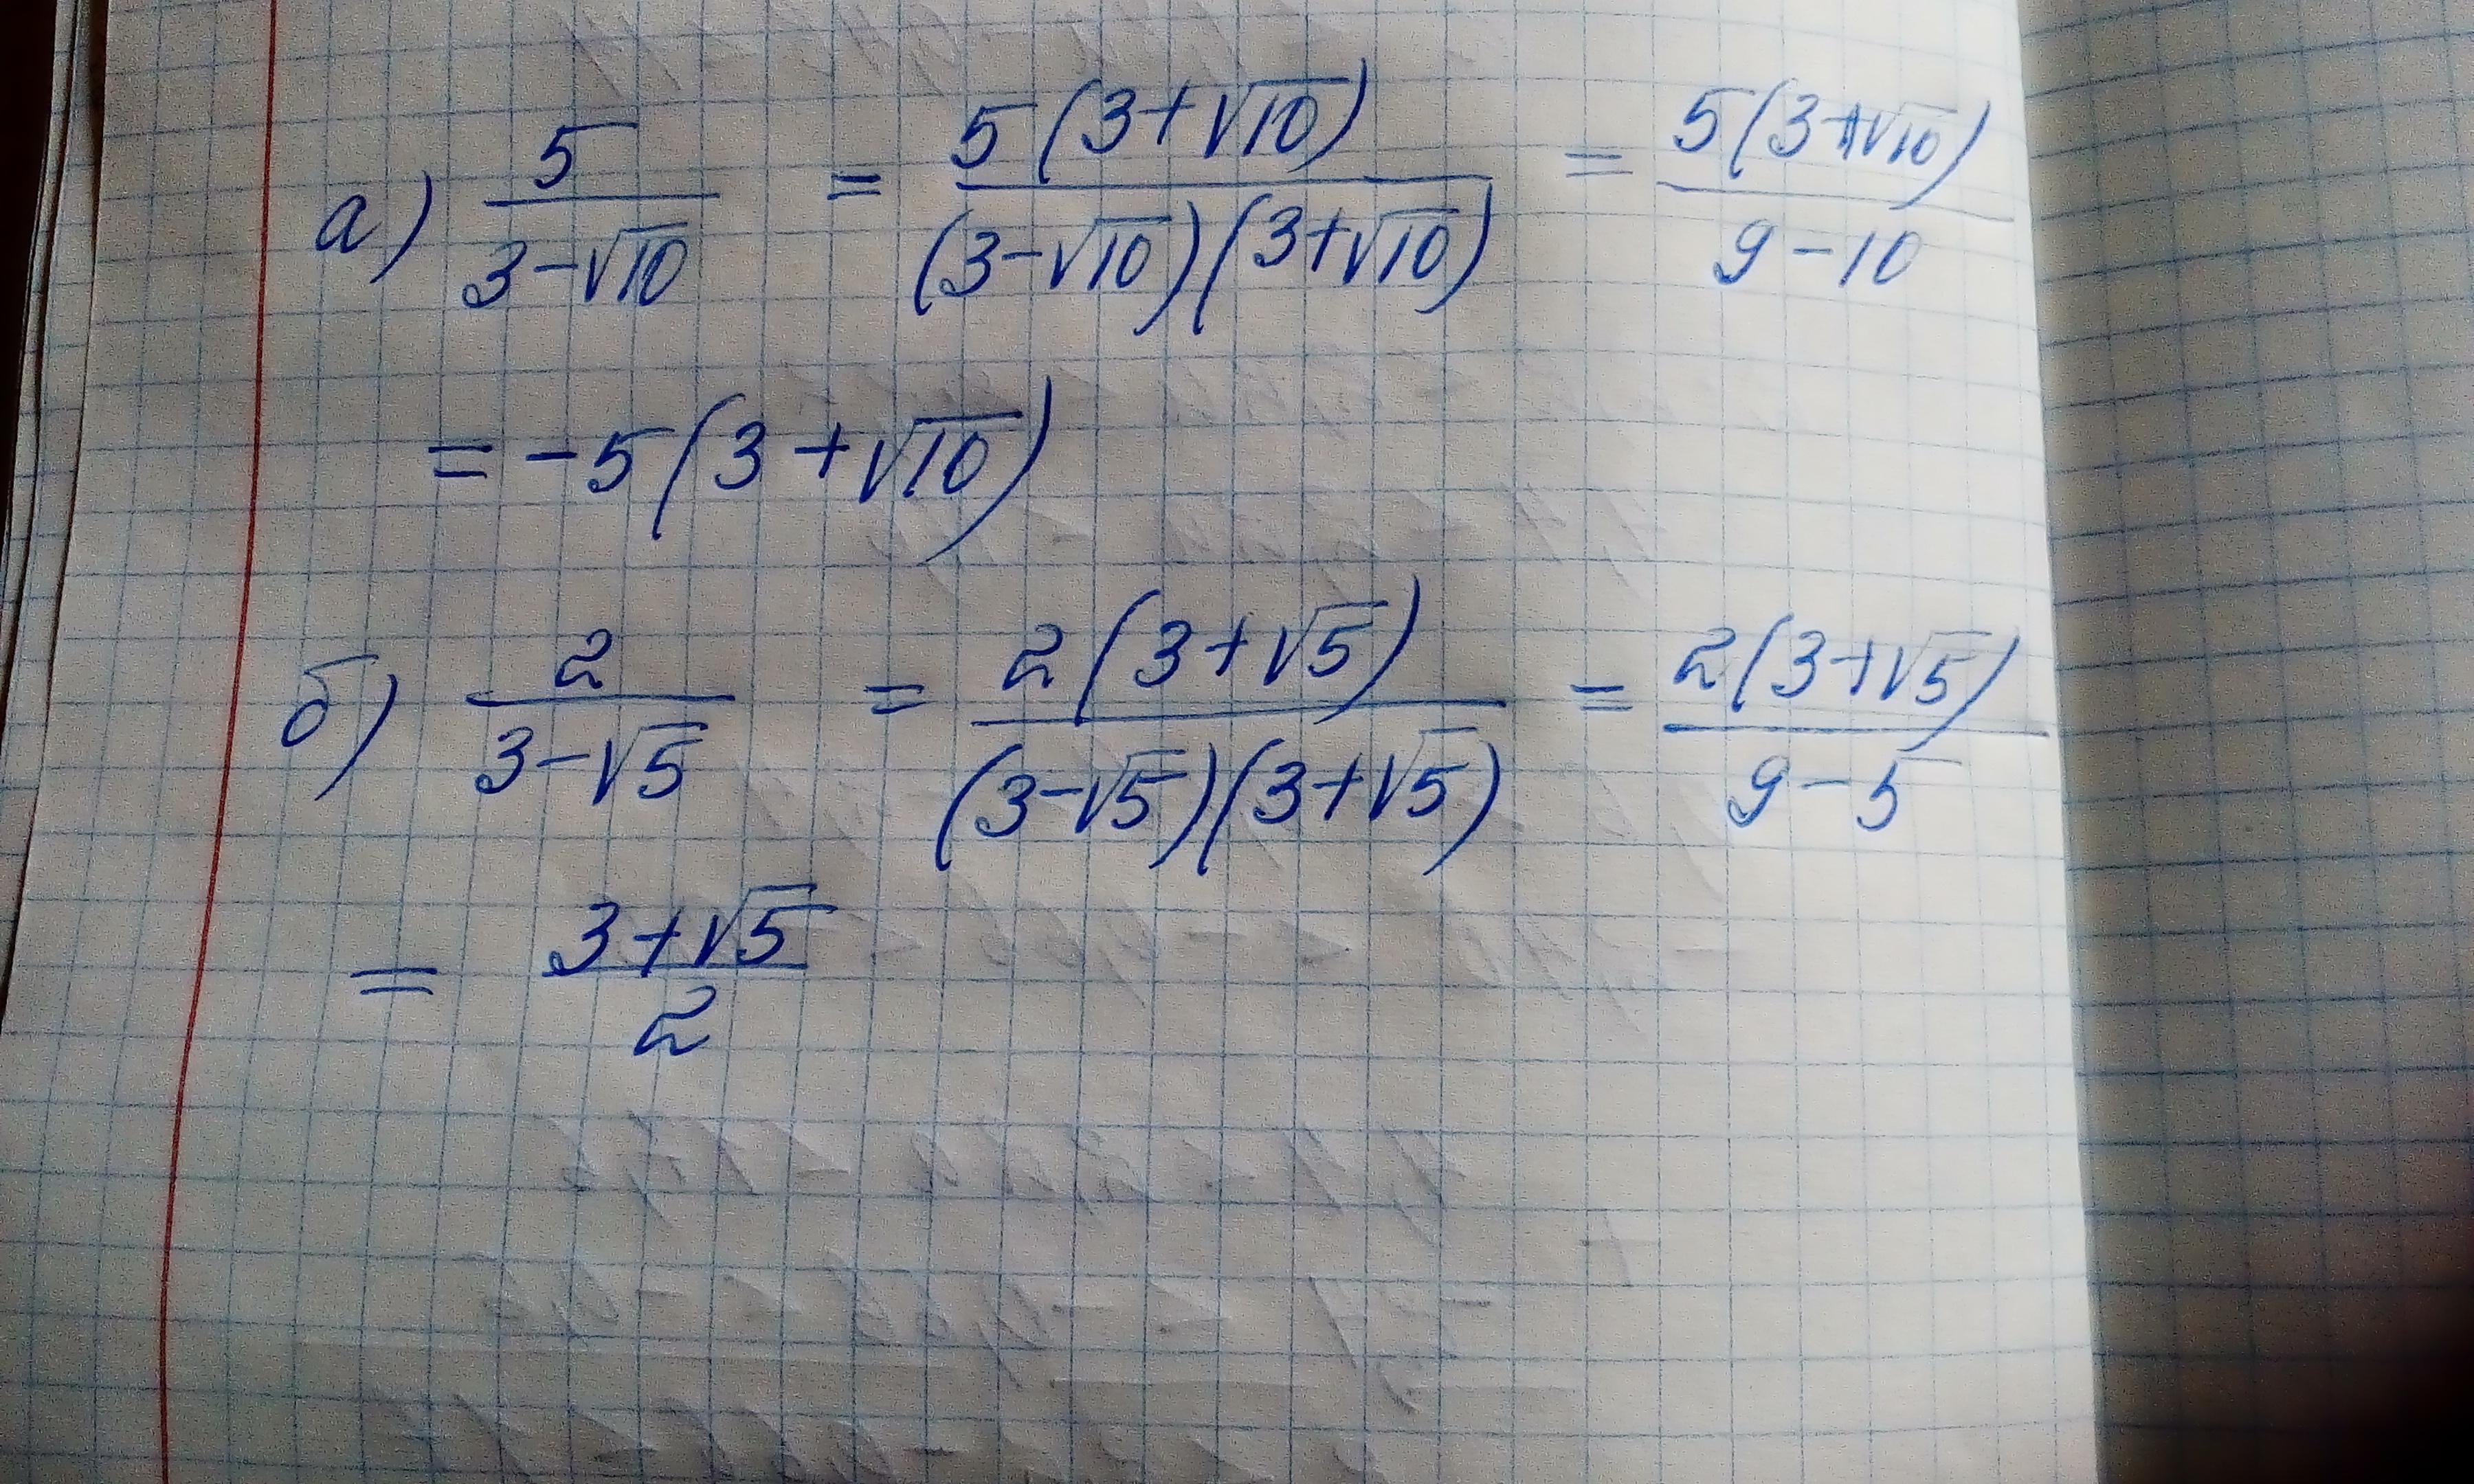 а) 5/(3-√10) = 5(3+√10)/((3-√10)(3+√10)) = 5(3+√10)/(9-10)
= -5(3+√10)
б) 2/(3-√5) = 2(3+√5)/((3-√5)(3+√5)) = 2(3+√5)/(9-5)
= (3+√5)/2